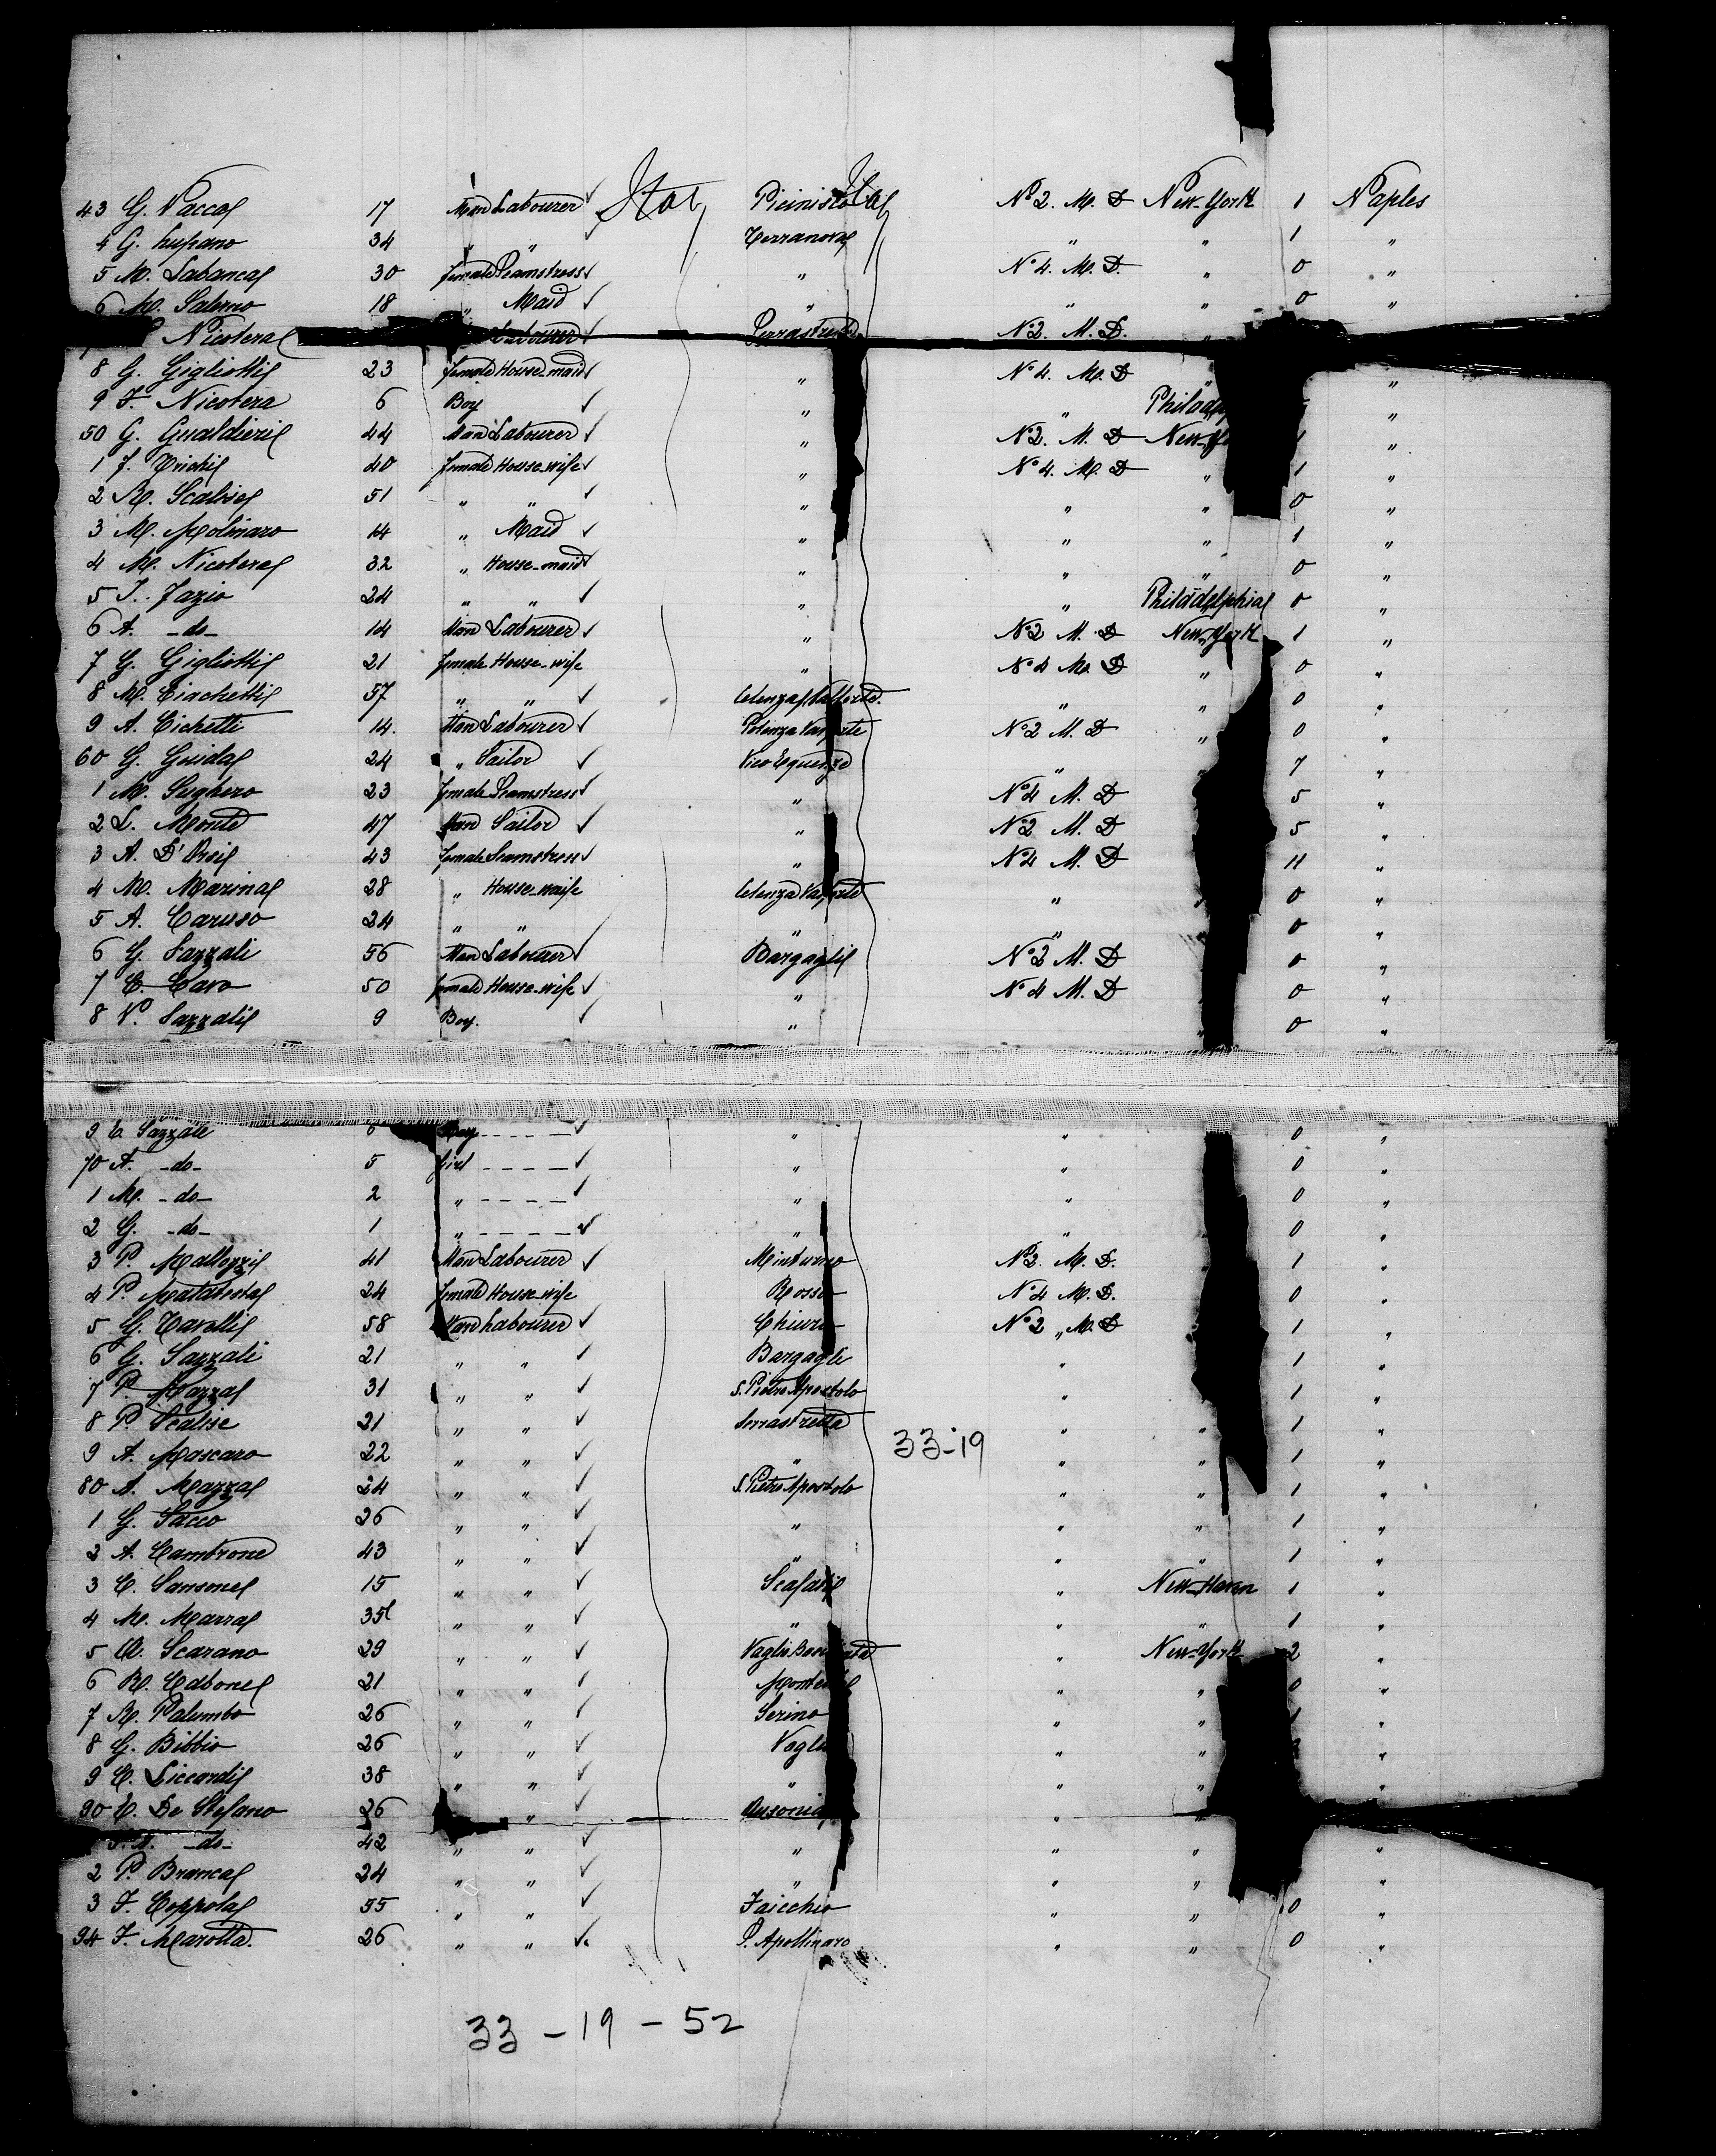 43 G. Vacca 17 Man Labourer Ital Picinisco Ital No 2. M. D New-York 1 Naples
4 G. Lupano 34 " " Terranova " " 1 "
5 M. Labanca 30 female Seamstress " No 4. M. D. " 0 "
6 M. Salerno 18 " Maid " " " 0 "
Nicotera Labourer No 2. M. D. "
8 G. Gigliotti 23 female House-maid " No 4. M. D " "
9 F. Nicotera 6 Boy " " "
50 G. Gualdieri 44 Man Labourer " No 2. M. D 1 "
1 F. 40 female House-wife " No 4. M. D " 1 "
2 R. Scalise 51 " " " " " 0 "
3 M. Molinaro 14 " Maid " " " 1 "
4 M. Nicotera 32 " House-maid " " " 0 "
5 F. Fazio 24 " " " " Philadelphia 0 "
6 A. -do- 14 Man Labourer " No 2 M. D New-York 1 "
7 G. Gigliotti 21 female House-wife " No 4 M. D " 0 "
8 M. Ciachetti 57 " " " " 0 "
9 A. Cichetti 14. Man Labourer No 2 M. D " 0 "
60 G. Guida 24 " Sailor Vico Equense " 7 "
1 M. 23 female Seamstress " No 4 M. D 5 "
2 L. Monte 47 Man Sailor " No 2 M. D 5 "
3 A. D'Orsi 43 female Seamstress " No 4 M. D 11 "
4 M. Marina 28 " House-wife " 0 "
5 A. Caruso 24 " " " " 0 "
6 G. Sazzali 56 Man Labourer Bargagli No 2 M. D 0 "
7 C. Cavo 50 female House-wife " No 4 M. D 0 "
8 V. Sazzali 9 Boy. " " 0 "
9 E. Sazzali Boy " " 0 "
70 A. -do- 5 girl " " 0 "
1 M. -do- 2 " " " 0 "
2 G. -do- 1 " " " 0 "
3 P. Mallozzi 41 Man Labourer Minturno No 2. M. D. 1 "
4 P. Malatesta 24 female House-wife No 4 M. D. 0 "
5 G. Tavelli 58 Man Labourer Chiuro No 2 " M. D 1 "
6 G. Sazzali 21 " " Bargagli " 1 "
7 P. Mazza 31 " " S. Pietro Apostolo " 1 "
8 P. Scalise 21 " " Serrastretta " " 1 "
33-19
9 A. Mascaro 22 " " " " " 1 "
80 A. Mazza 24 " " S. Pietro Apostolo " " 1 "
1 G. Sacco 26 " " " " " 1 "
2 A. Cambrone 43 " " " " " 1 "
3 C. Sansone 15 " " Scafati " New-Haven 1 "
4 M. Marra 35 " " " " " 1 "
5 Scarano 29 " " " New-York 2 "
6 R. 21 " " " " 0 "
7 R. Palumbo 26 " " Serino " " "
8 G. Bibbio 26 " " " " "
9 C. Liccardi 38 " " " " " "
90 C. De Stefano 26 " Ausonia " " "
-do- 42 " " " " " "
2 P. Branca 24 " " " " " "
3 F. Coppola 55 " " Faicchio " " 0 "
94 F. Marotta. 26 " " S. Apollinaro " " 0 "
33 - 19 - 52